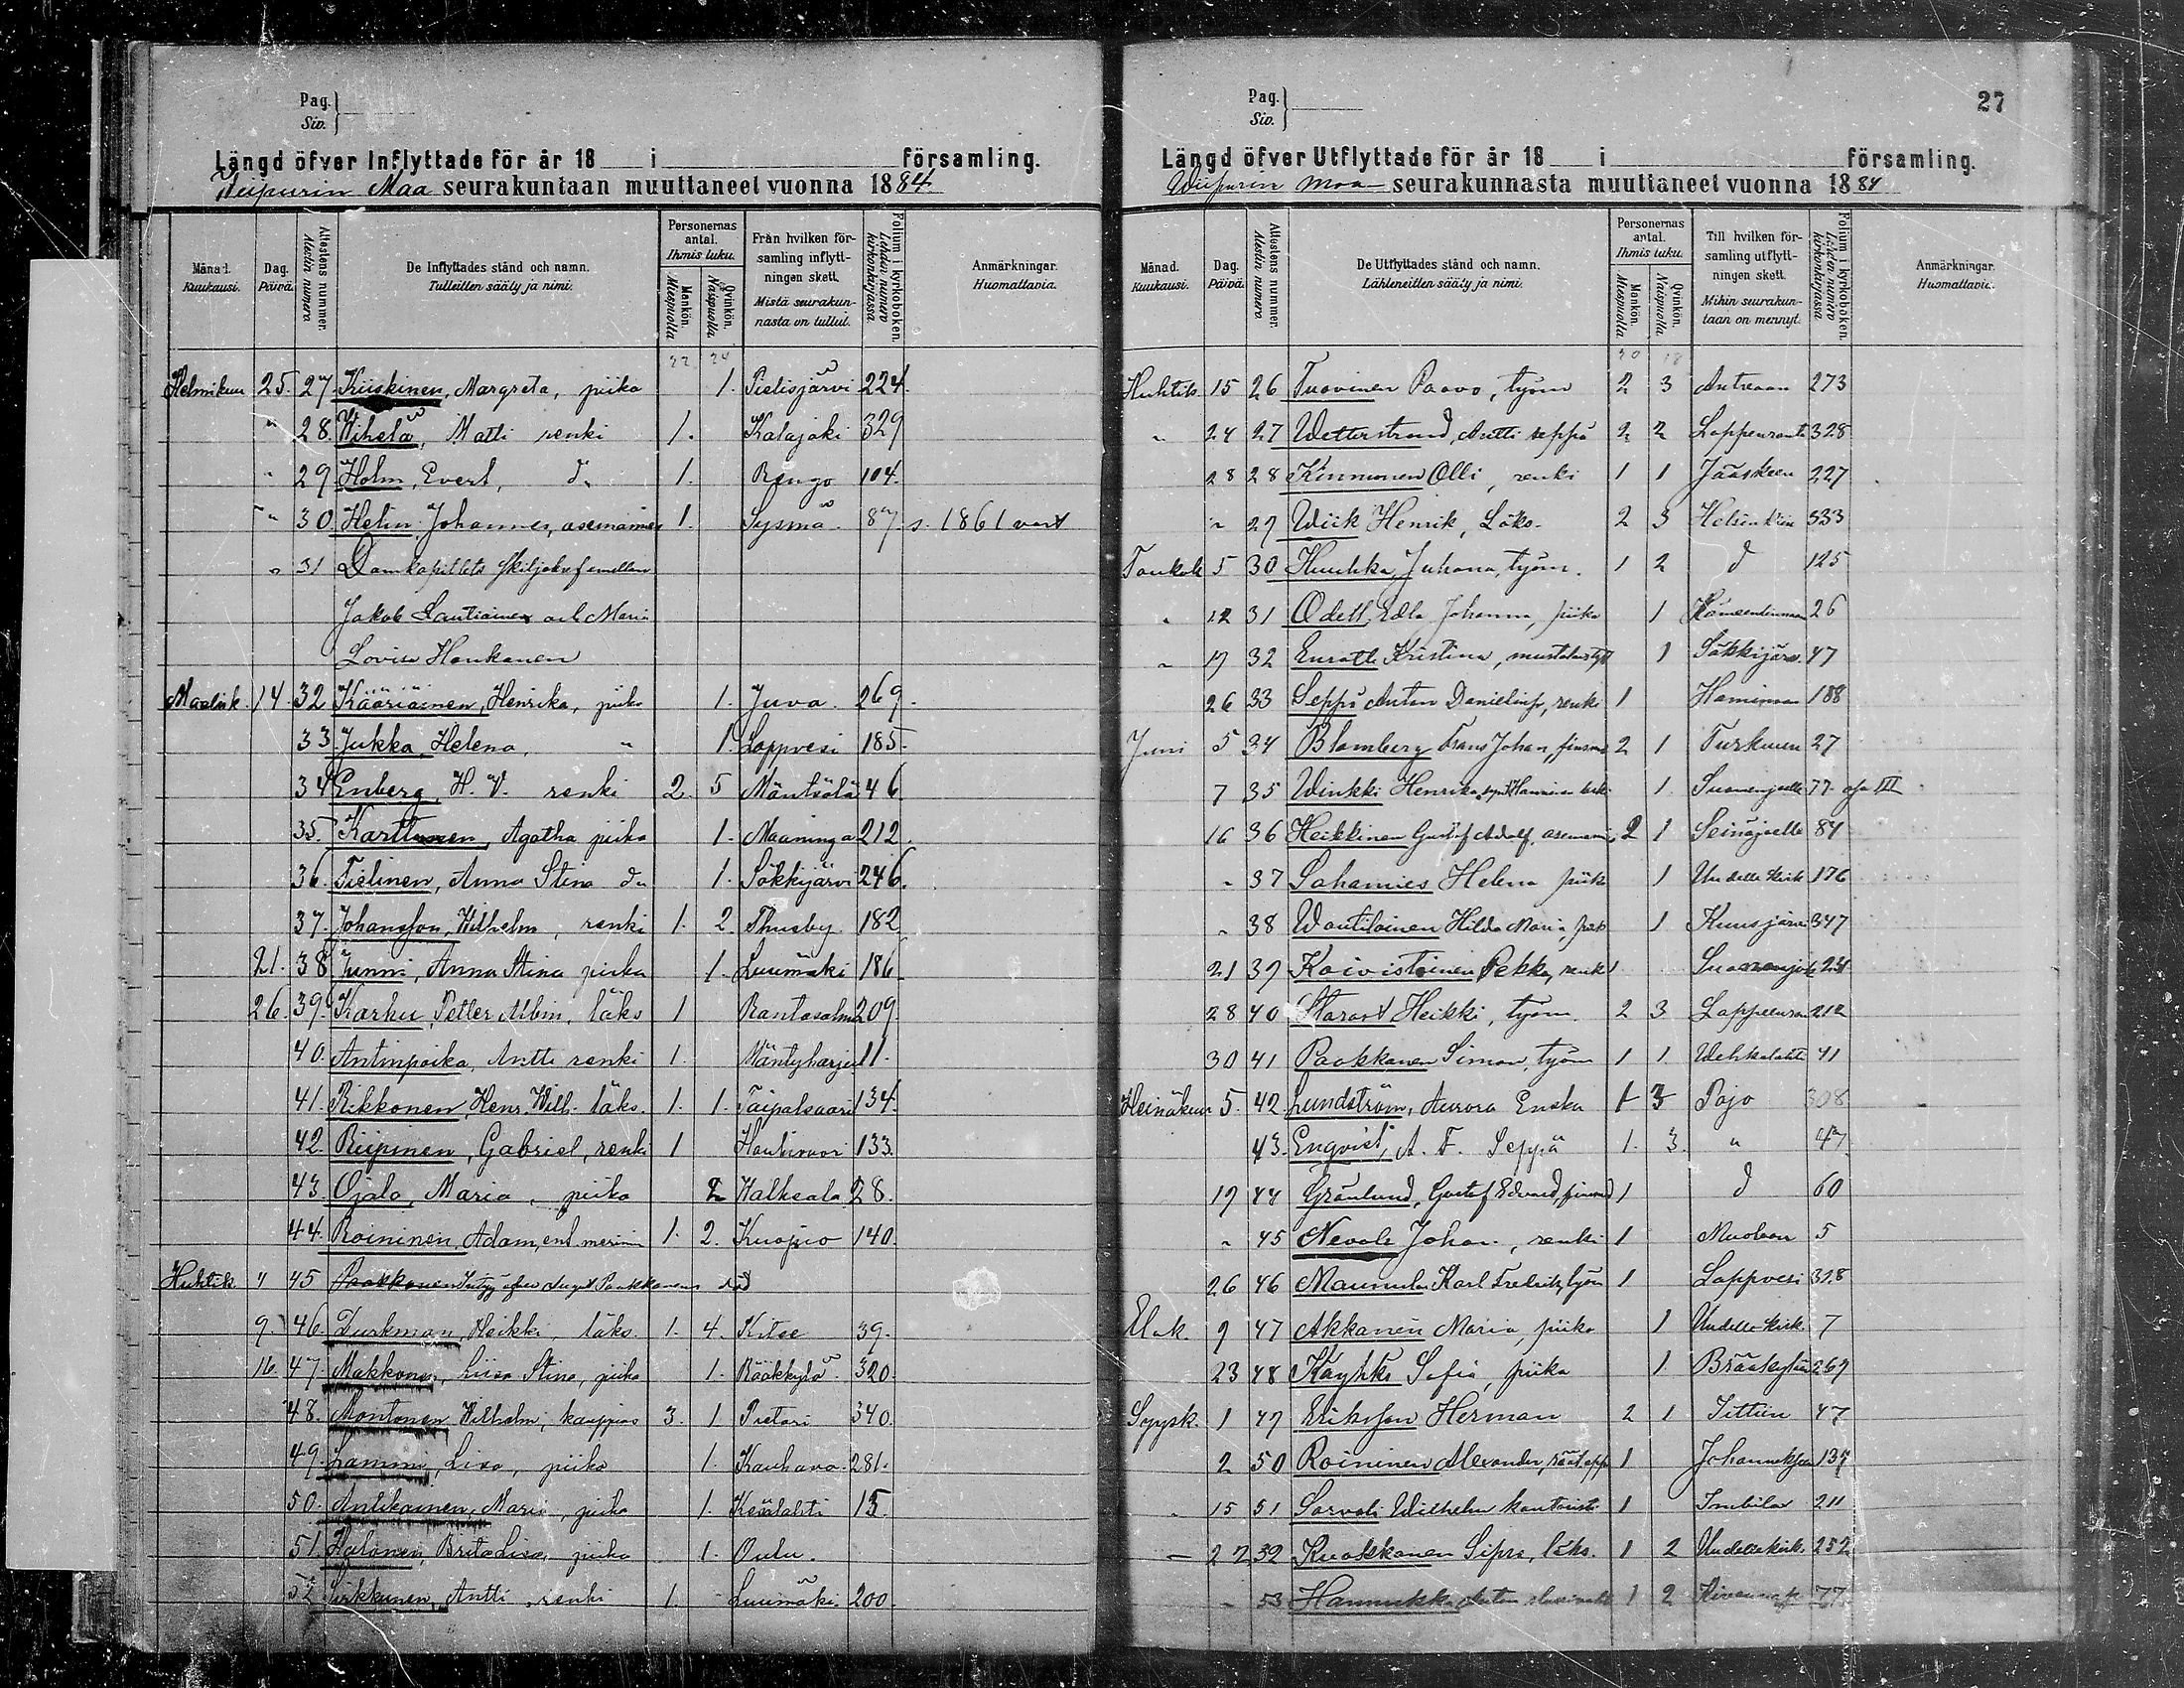 Pag.
Siv.
Längd öfver Inflyttade för år 18 i församling.
Wiipurin Maa seurakuntaan muuttaneet vuonna 1884
Månad. Kuukausi. Dag. Päivä. Attestens nummer. Alestin numero De Inflyttades stånd och namn. Tulleitten sääty ja nimi. Personernas antal. Ihmis luku. Mankön. Miespuolta Qvinkön. Naispuolta Från hvilken församling inflyttningen skett. Mistä seurakunnasta on tullut. Folium i kyrkoboken. Lehden numero kirkonkirjassa Anmärkningar. Huomattavia.
Helmikuu 25. 27 Kiiskinen, Margreta, piika 1. Pielisjärvi 224.
" 28. Wihela, Matti renki 1. Kalajoki 329
" 29 Holm, Evert, d:o 1. Rengo 104.
" 30. Helin, Johannes, asemamies 1. Sysmä 87 s. 1861
" 31 Domkapitlets skiljobref emellan
Jakob Lautiainen och Maria
Lovisa Haukanen
Maalisk. 14. 32 Kääriäinen, Henrika, piika 1. Juva 269.
33. Jukka, Helena, " 1. Lappvesi 185.
34 Enberg, H. V. renki 2. 5 Mäntsälä 46
35. Karttunen, Agatha piika 1. Maaninga 212.
36. Tielinen, Anna Stina d:o 1. Säkkijärvi 246.
37. Johansson, Wilhelm, renki 1. 2. Thusby 182
21. 38 Junni, Anna Stina piika 1. Luumäki 186
26. 39. Karhu, Petter Albin, läks 1 Rantasalmi 209.
40. Antinpoika, Antti renki 1. Mäntyharju 11.
41. Rikkonen, Henr. Wilh. läks. 1. 1. Taipalsaari 134.
42. Riipinen, Gabriel, renki 1 Hautivuori 133.
43. Ojala, Maria, piika 2 Walkeala 28.
44. Roininen, Adam, ent. merim 1. 2. Kuopio 140.
Huhtik. 45 Paakkonen
9. 46 Turkman, Heikki, läks. 1. 4. Kitee 39.
16. 47. Makkonen, Liisa Stina, piika 1. Rääkkylä 320.
48. Montonen Wilhelm, kauppias 3. 1 Pietari 340.
49. Lammi, Lisa, piika 1. Kauhava 281.
50. Antikainen, Maria, piika 1. Kesälahti 15.
51. Halonen, Brita Lisa, piika 1. Oulu.
52 Sirkkunen, Antti, renki 1. Luumäki 200.
Pag.
Siv.
27
Längd öfver Utflyttade för år 18 i församling.
Wiipurin maa seurakunnasta muuttaneet vuonna 1884
Månad. Kuukausi. Dag. Päivä. Attestens nummer. Alestin numero De Utflyttades stånd och namn. Lähteneitten sääty ja nimi. Personernas antal. Ihmis luku. Mankön. Miespuolta Qvinkön. Naispuolta Till hvilken församling utflyttningen skett. Mihin seurakuntaan on mennyt. Folium i kyrkoboken. Lehden numero kirkonkirjassa Anmärkningar. Huomattavia.
Huhtik. 15 26 Tuovinen Paavo, työm 2 3 Antrean 273
" 24 27 Wetterstrand, Antti seppä 2 2 Lappenranta 328
28 28 Kinnunen Olli, renki 1 1 Jääskeen 227
" 29 Wiik Henrik, Läks. 2 3 Helsinkiin 333
Toukok 5 30 Huuhka, Juhana, työm. 1 2 d 125
" 12 31 Odell, Edla Johanna, piika 1 Hämeenlinnaan 26
" 17 32 Enroth Kristina, 1 Säkkijärvi 47
26 33 Seppä Anton Danielinp, renki 1 Haminaan 188
Juni 5 34 Blomberg Frans Johan, 2 1 Turkuun 27
7 35 Winkki Henrika 1 Suonenjoelle 77
16 36 Heikkinen Gustaf Adolf, asemami 2 1 Seinäjoelle 84
" 37 Sahamies Helena piika 1 Uudelle Kirk 176
" 38 Wautilainen Hilda Maria, piik 1 Kuusjärvi 347
21 39 Koivistoinen Pekka, renk 1 Suonenjok 24
28 40 Starast Heikki, työm. 2 3 Lappeenran 212
30 41 Paakkanen Simon, työm 1 1. Wehkalahti 41
Heinäkuu 5. 42. Lundström, Aurora Enska 1 3 Pojo 308
43. Enqvist, A. F. Seppä 1. 3. " 47
19 44 Grönlund, Gustaf Edvard, 1 d 60
" 45 Nevala Johan., renki 1 Muolaan 5
26 46 Maunula Karl Fredrik, työm 1 Lappvesi 328
Elok. 9 47 Akkanen Maria, piika 1 Uudelle Kirk. 7
23 48 Käyhkö Sofia, piika 1. 269
Syysk. 1 49 Eriksson Herman 2 1 Iittiin 47
2 50 Roininen Alexander, räät.opp 1 Johannekseen 139
" 15 51 Sarvali Wilhelm 1 Imbilax 211
27 52 Kuokkanen Sipro, läks. 1 2 Uudellekirk. 252
" 53 Hannukka Anton 1 2 77